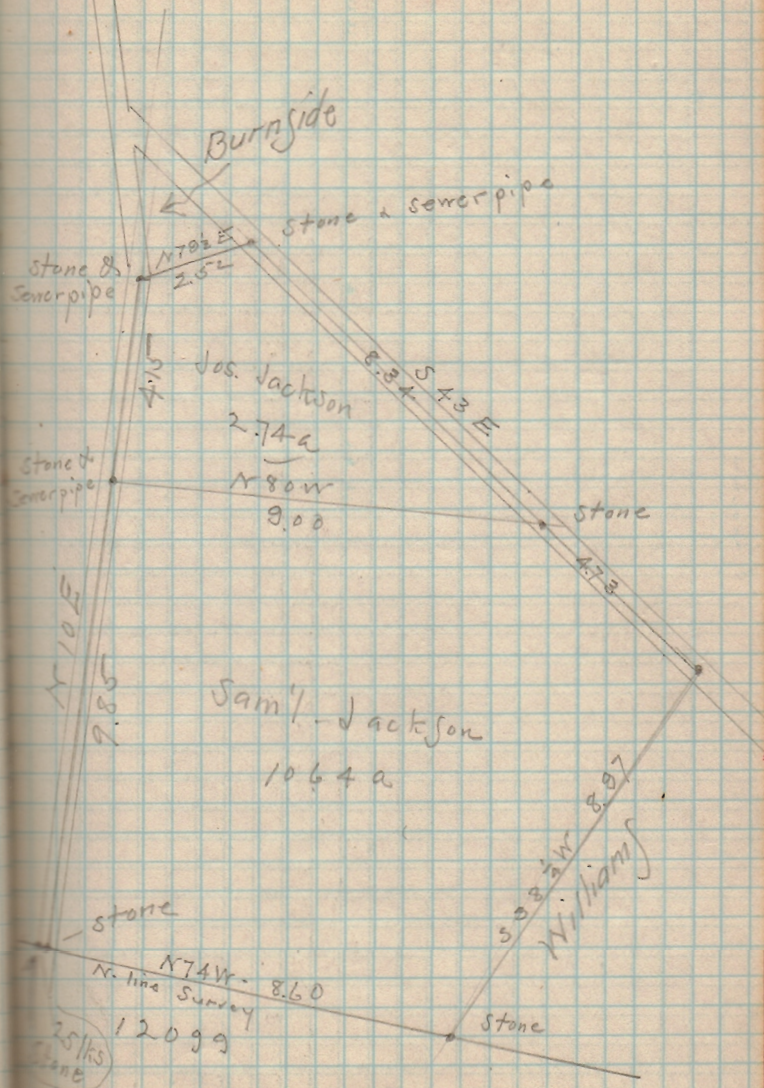 Burnside
stone & sewerpipe
N 78½ E
2.52
stone &
Sewerpipe
4.15
Jos. Jackson
2.74 a
8.34
S 43 E
stone &
Sewerpipe
N 80 W
9.00
stone
4.73
N 10 E
9.85
Sam'l Jackson
10 64 a
8.97
S 38 ½ W
Williams
stone
N 74 W - 8.60
N. line Survey
12099
stone
25 lks
Stone